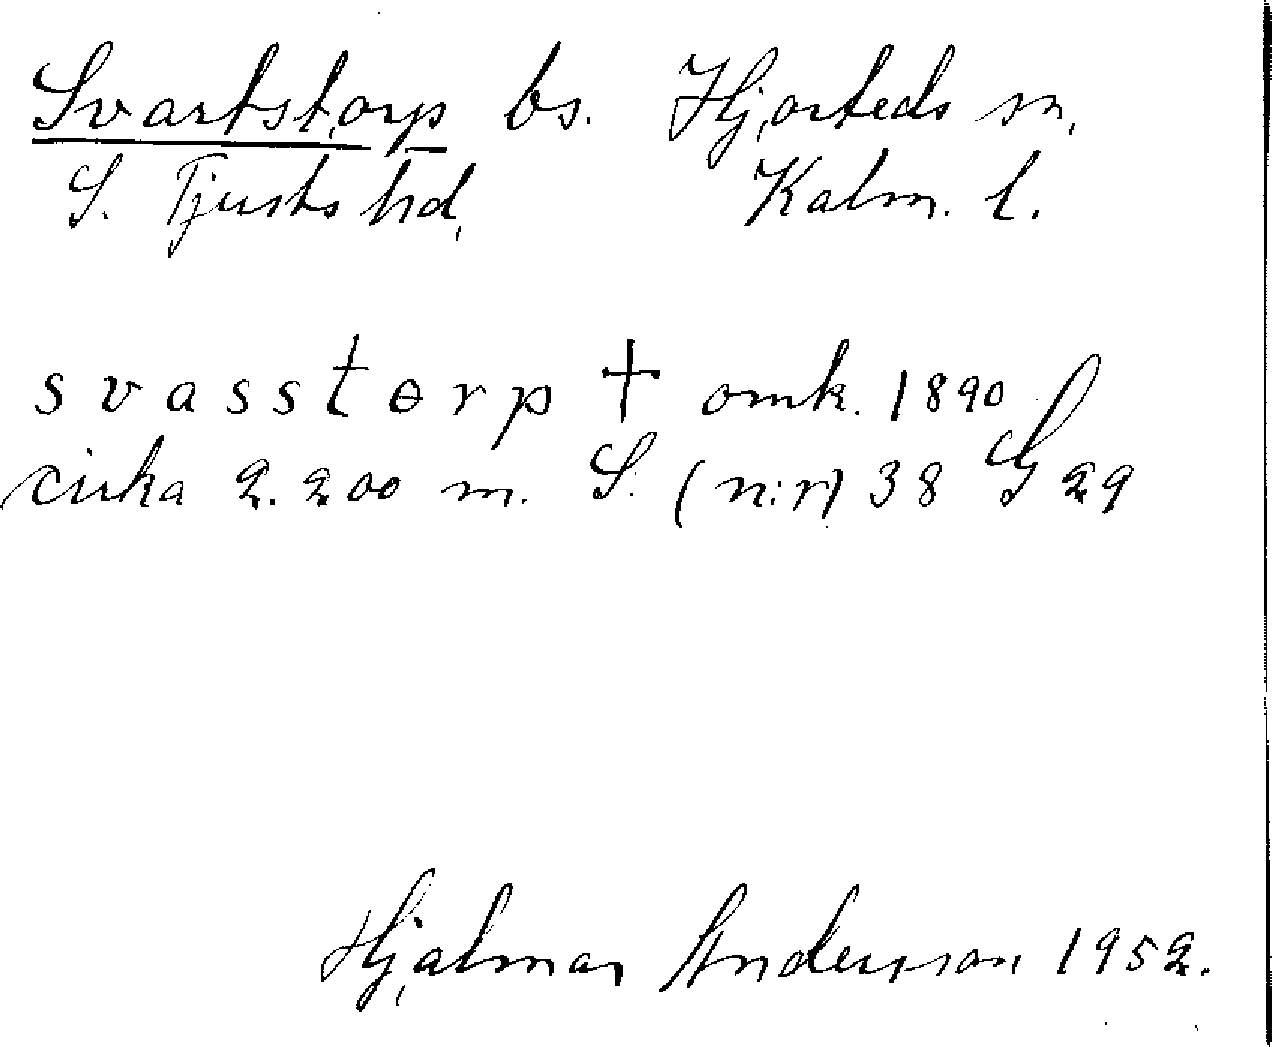 Svartstorp bs. Hjorteds sn,
S. Tjusts hd, Kalm. l.
svasstɵrp † omk. 1890
cirka 2.200 m. S. (n:r) 38 G 29
Hjalmar Andersson 1952.